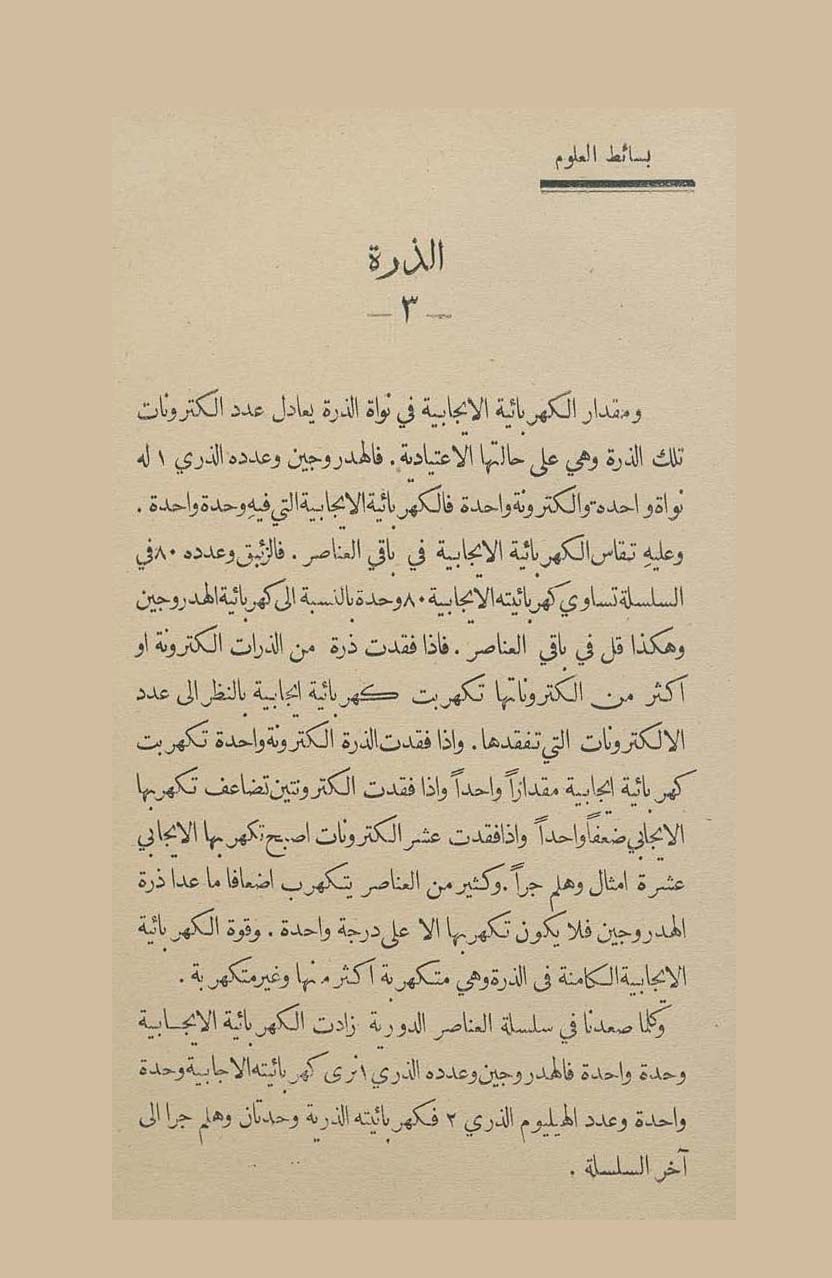 بسائط العلوم
الذرة
— ٣ —
ومقدار الكهربائية الايجابية في نواة الذرة يعادل عدد الكترونات
تلك الذرة وهي على حالتها الاعتيادية. فالهدروجين وعدده الذري ١ له
نواة واحدة والكترونة واحدة فالكهربائية الايجابية التي فيهِ وحدة واحدة .
وعليهِ تقاس الكهربائية الايجابية في باقي العناصر . فالزئبق وعدده ٨٠ في
السلسلة تساوي كهربائيته الايجابية ٨٠ وحدة بالنسبة الى كهربائية الهدروجين
وهكذا قل في باقي العناصر . فاذا فقدت ذرة من الذرات الكترونة او
اكثر من الكتروناتها تكهربت كهربائية ايجابية بالنظر الى عدد
الالكترونات التي تفقدها . واذا فقدت الذرة الكترونة واحدة تكهربت
كهربائية ايجابية مقداراً واحداً واذا فقدت الكترونتين تضاعف تكهربها
الايجابي ضعفاً واحداً واذا فقدت عشر الكترونات اصبح تكهربها الايجابي
عشرة امثال وهلم جراً . وكثير من العناصر يتكهرب اضعافا ما عدا ذرة
الهدروجين فلا يكون تكهربها الا على درجة واحدة . وقوة الكهربائية
الايجابية الكامنة في الذرة وهي متكهربة اكثر منها وغير متكهربة .
وكلما صعدنا في سلسلة العناصر الدورية زادت الكهربائية الايجابية
وحدة واحدة فالهدروجين وعدده الذري ١ نرى كهربائيته الاجابية وحدة
واحدة وعدد الهيليوم الذري ٢ فكهربائيته الذرية وحدتان وهلم جرا الى
آخر السلسلة .